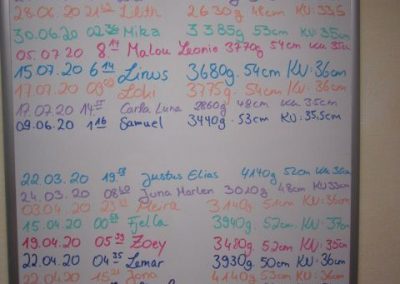 28.06.20 21 Lilith 2630g 48cm KU:33,5
30.06.20 02 Mika 3385g 53cm KU:35cm
05.07.20 8 14 Malou Leonie 3770g 54cm KU 35
15.07.20 6 14 Linus 3680g. 54cm KU:36cm
17.07.20 Loki 3775g. 54cm KU:36cm
17.07.20 14 Carla Luna 2860g 48cm KU. 35cm
09.06.20 1 16 Samuel 3440g. 53cm KU:35.5cm
22.03.20 19 Justus Elias 4140g 52cm KU 36cm
24.03.20 08 Juna Marlen 3010g 48cm KU 33cm
03.04.20 23 Meira 3140g 51cm KU:36cm
15.04.20 00 Fjella 3940g 52cm. KU:37cm
19.04.20 05 Zoey 3480g 52cm KU:35cm
22.04.20 04 35 Lemar 3930g 50cm KU:36cm
22.04.20 15 Jona 4140g 53cm KU:36cm